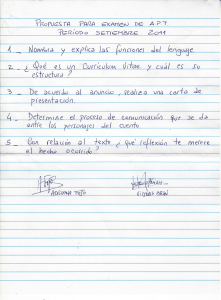 PROPUESTA PARA EXAMEN DE A.P.T
PERÍODO SETIEMBRE 2011
1_ Nombra y explica las funciones del lenguaje
2_ ¿Qué es un Currículum Vitae y cuál es su
estructura?
3_ De acuerdo al anuncio, realiza una carta de
presentación.
4_ Determine el proceso de comunicación que se da
entre los personajes del cuento
5_ Con relación al texto ¿qué reflexión te merece
el hecho ocurrido?
ADRIANA